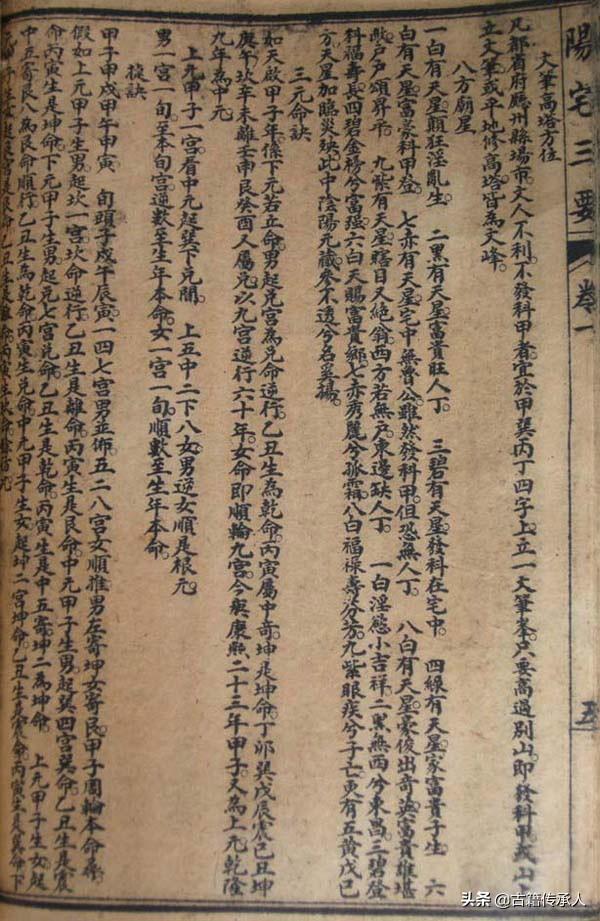 陽宅三要 卷一 五
文筆高塔方位
凡都省府廳州縣場市文人不利不發科甲者宜於甲巽丙丁四字上立一文筆峯只要高過別山即發科甲或山上
立文筆或平地修高塔皆為文峰
八方廟星
一白有天星顛狂淫亂生　二黑有天星富貴旺人丁　三碧有天星發科在宅中　四綠有天星家富貴子生　六
白有天星富豪科甲登　七赤有天星宅中無曾公雖然發科甲但恐無人丁　八白有天星豪俊出奇英富貴雄堪
戶戶頌昇平　九紫有天星瞎目又絕翁西方若無戶東邊缺人丁　一白淫慾小吉祥二黑無西兮東昌三碧登
科福壽長四碧金榜兮富强六白天賜富貴鄉七赤秀麗兮孤霜八白福祿壽芬芳九紫眼疾兮子亡更有五黃戊己
方天星加臨災殃此中陰陽元識參不透兮名奚揚
三元命訣
如天啟甲子年係下元若立命男起兌宮為兌命逆行乙丑生為乾命丙寅屬中寄坤是坤命丁卯巽戊辰震己丑坤
庚午坎辛未離壬申艮癸酉又屬兌以九宮逆行六十年女命即順輪九宮今與康熙二十三年甲子又為上元乾隆
九年為中元
上元甲子一宮看中元起巽下兌間　上五中二下八女男逆女順是根元
男一宮一旬至本旬宮逆數至生年本命女一宮一旬順數至生年本命
捷訣
甲子甲戌甲午甲寅　旬頭子戌午辰寅一四七宮男並佈五二八宮女順推男左寄坤女寄艮甲子周輪本命尋
假如上元甲子生男起坎一宮坎命逆行乙丑生是離命丙寅生是艮命中元甲子生男起巽四宮巽命乙丑生是震
命丙寅生是坤命下元甲子生男起兌七宮兌命乙丑生是乾命丙寅生是中五寄坤二為坤命　上元甲子生女起
中五寄艮八為艮命順行乙丑生為乾命丙寅生兌命中元甲子生女起坤二宮坤命乙丑生是震命丙寅生是巽命下
頭条 @古籍传承人